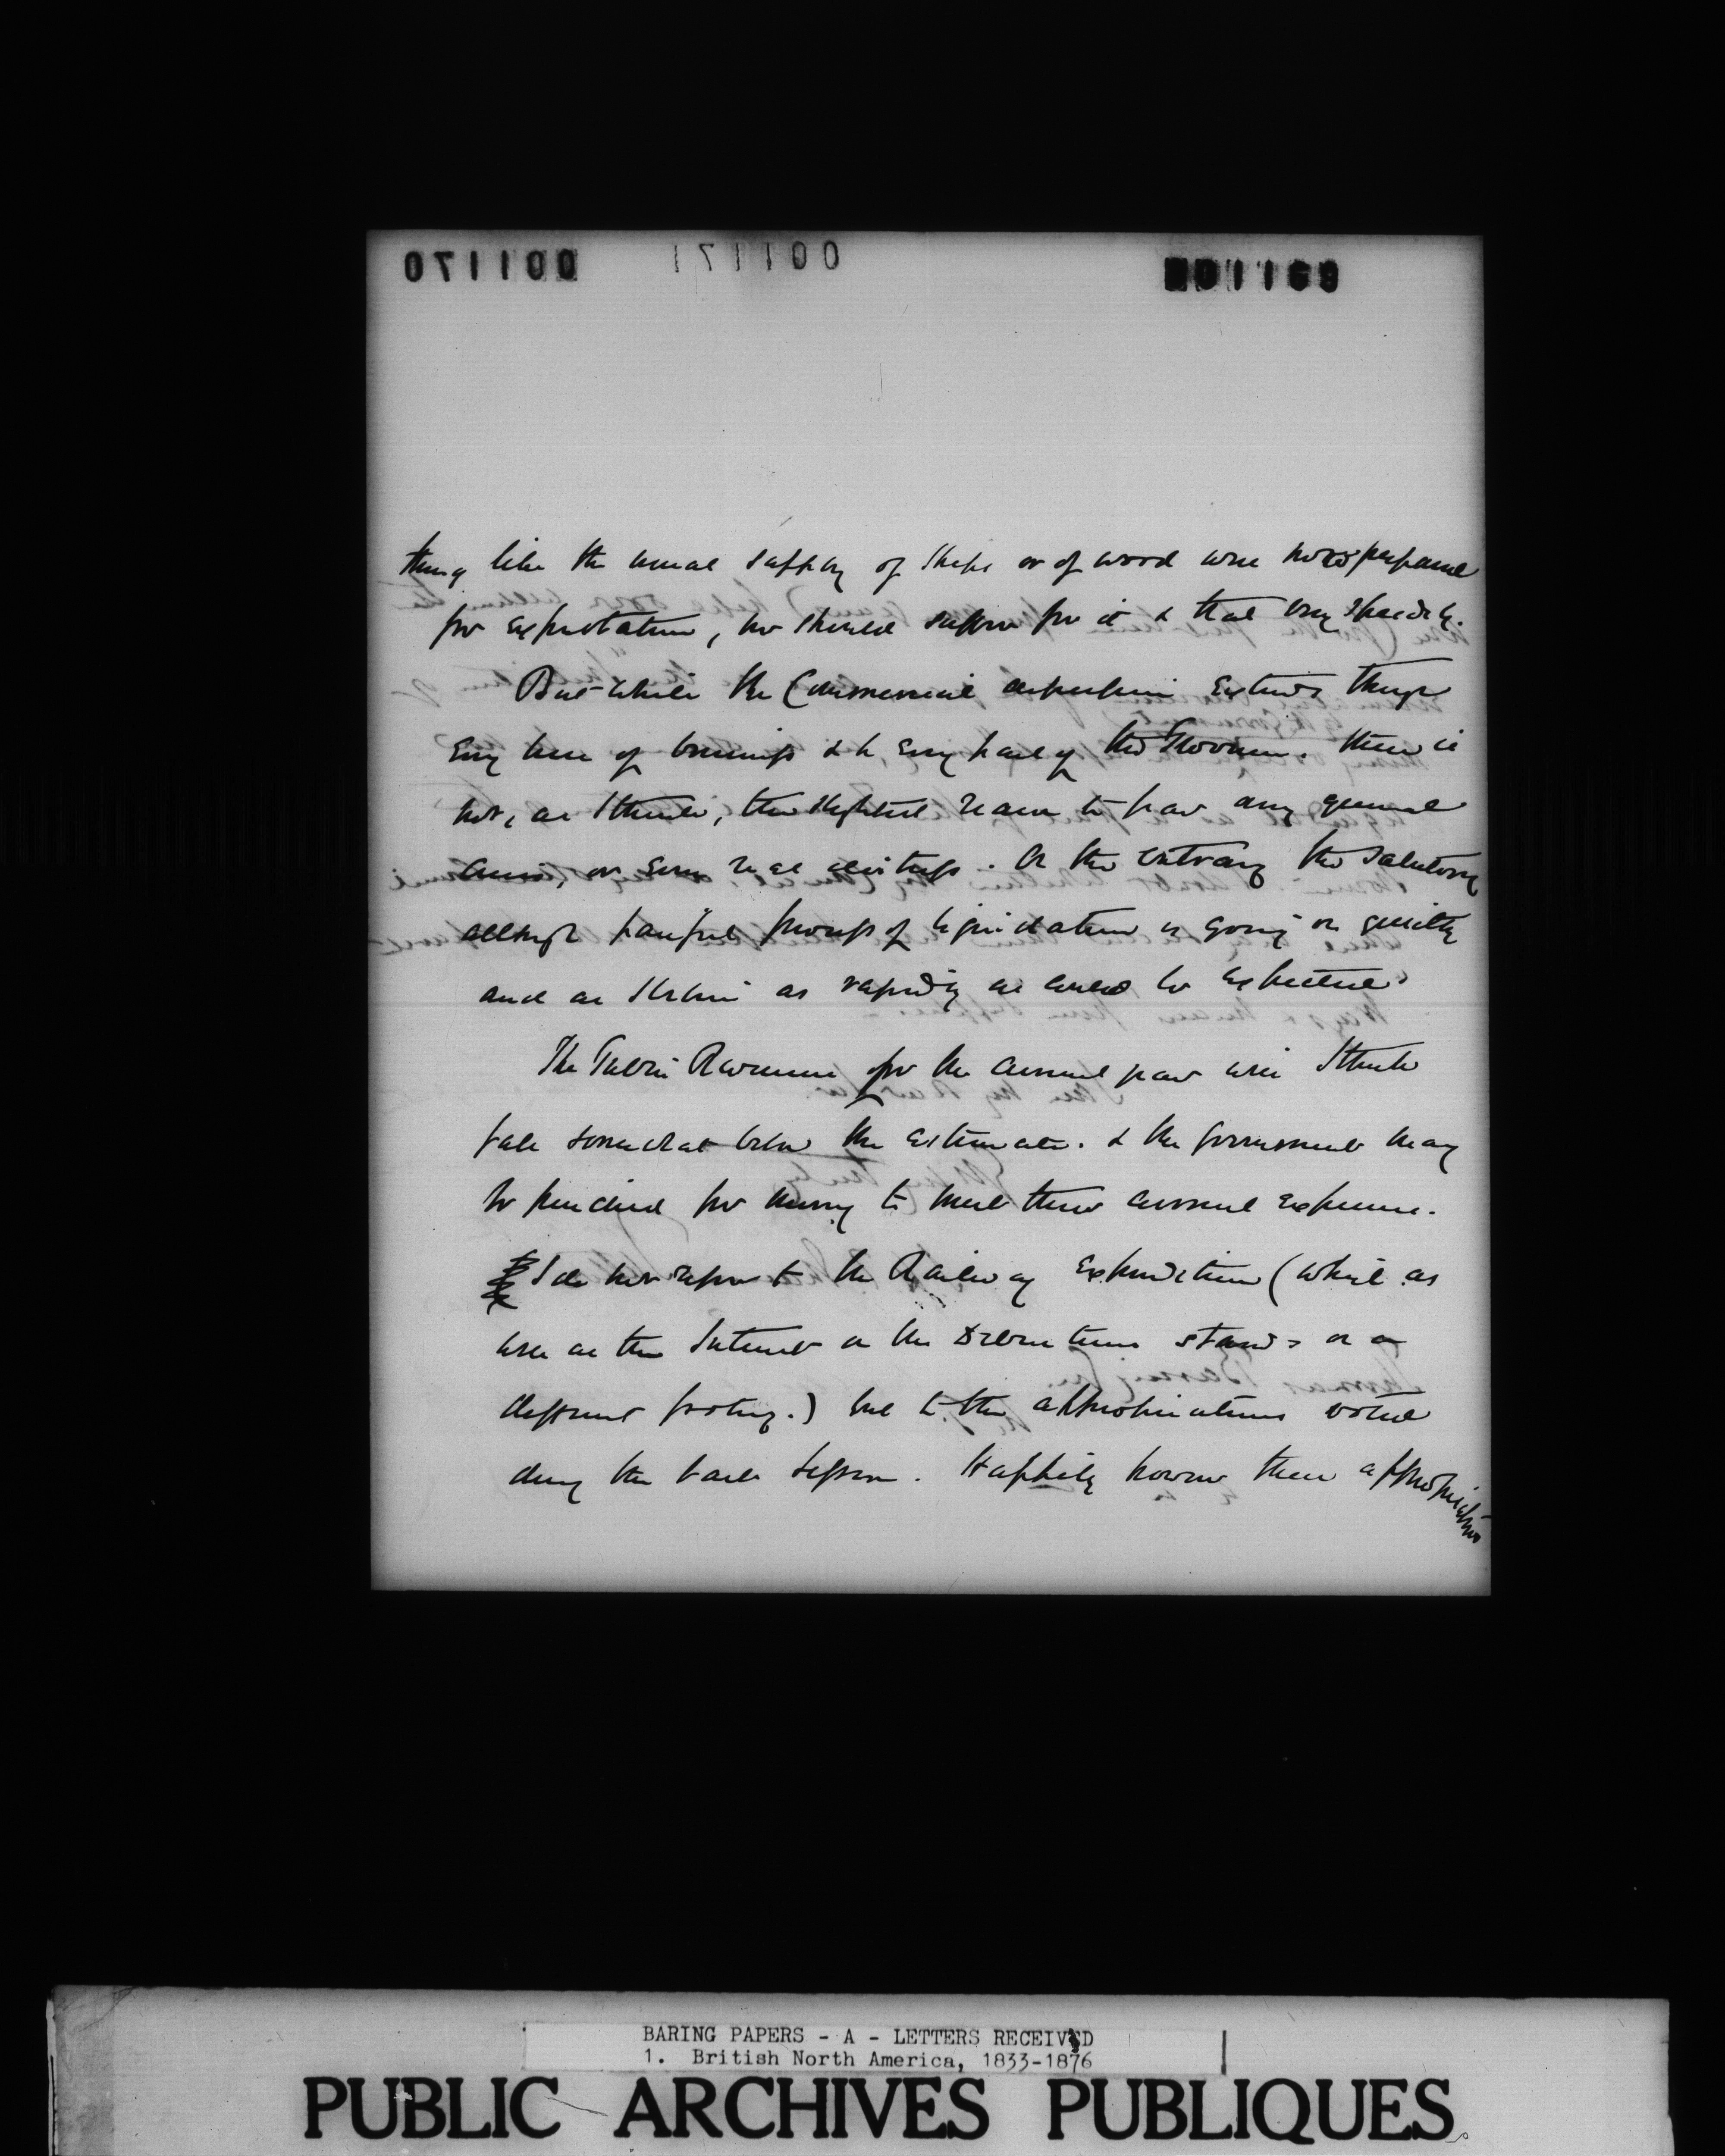 001170 001171 001169
thing like the usual supply of Ships or of wood were now prepared
for exportation, we should suffer for it & that very speedily.
But while the Commercial depression extends through
every line of business & to every part of the Province. there is
not, as I think, the slightest reason to fear any general
crisis, or even real distress. On the contrary the salutary
although painful process of liquidation is going on quietly
and as I believe as rapidly as could be expected.
The Public Revenue for the current year will I think
fall somewhat below the estimate. & the Government may
be pinched for money to meet those current expenses.
I do not refer to the Railway Expenditure (which as
well as the Interest on the Debentures stands on a
different footing.) but to the appropriations voted
during the last Session. Happily however these appropriations
BARING PAPERS - A - LETTERS RECEIVED
1. British North America, 1833-1876
PUBLIC ARCHIVES PUBLIQUES